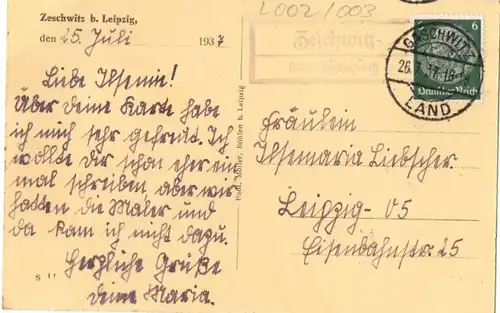 Zeschwitz b. Leipzig,
den 25. Juli 1937
Liebe Ilsemie!
Über deine Karte habe
ich mich sehr gefreut. Ich
wollte dir schon eher ein
mal schreiben aber wir
hatten die Maler und
da kam ich nicht dazu.
Herzliche Grüße
deine Maria.
L002/003
Zeschwitz
6
Deutsches Reich
GASCHWITZ
26.7.
LAND
Fräulein
Ilsemaria Liebscher.
Leipzig-O5
Eisenbahnstr. 25
Müller, Böhlen b. Leipzig